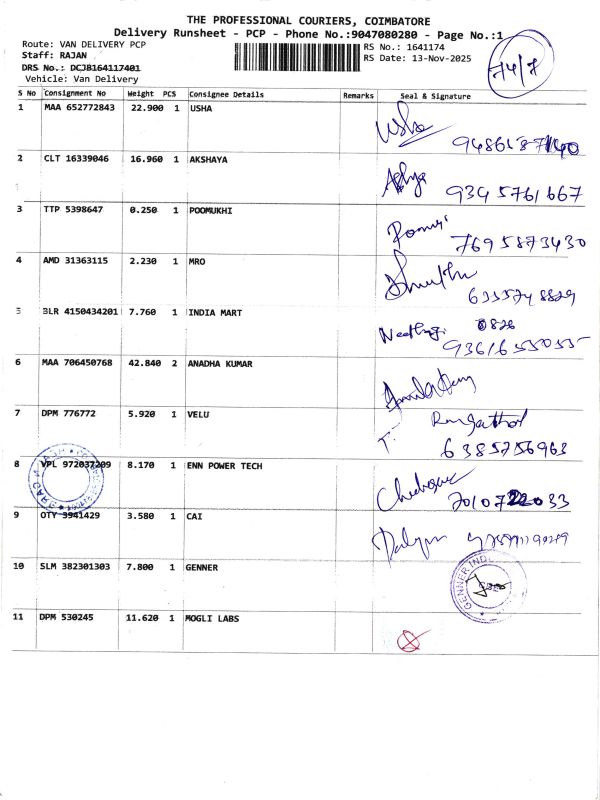 THE PROFESSIONAL COURIERS, COIMBATORE
Delivery Runsheet - PCP - Phone No.:9047080280 - Page No.:1
Route: VAN DELIVERY PCP
Staff: RAJAN
DRS No.: DCJB164117401
Vehicle: Van Delivery
RS No.: 1641174
RS Date: 13-Nov-2025
74/7
S No Consignment No Weight PCS Consignee Details Remarks Seal & Signature
1 MAA 652772843 22.900 1 USHA
Usha
2 CLT 16339046 16.960 1 AKSHAYA
9345761667
3 TTP 5398647 0.250 1 POOMUKHI
7695873430
4 AMD 31363115 2.230 1 MRO
5 BLR 4150434201 7.760 1 INDIA MART
6 MAA 706450768 42.840 2 ANADHA KUMAR
7 DPM 776772 5.920 1 VELU
6385756963
8 VPL 972037209 8.170 1 ENN POWER TECH
9 OTY 3941429 3.580 1 CAI
10 SLM 382301303 7.800 1 GENNER
GENNER
11 DPM 530245 11.620 1 MOGLI LABS